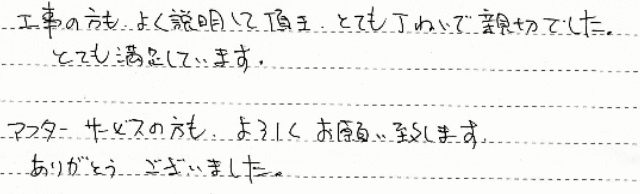 工事の方も、よく説明して頂き、とても丁ねいで親切でした。
とても満足しています。
アフターサービスの方も、よろしくお願い致します。
ありがとうございました。